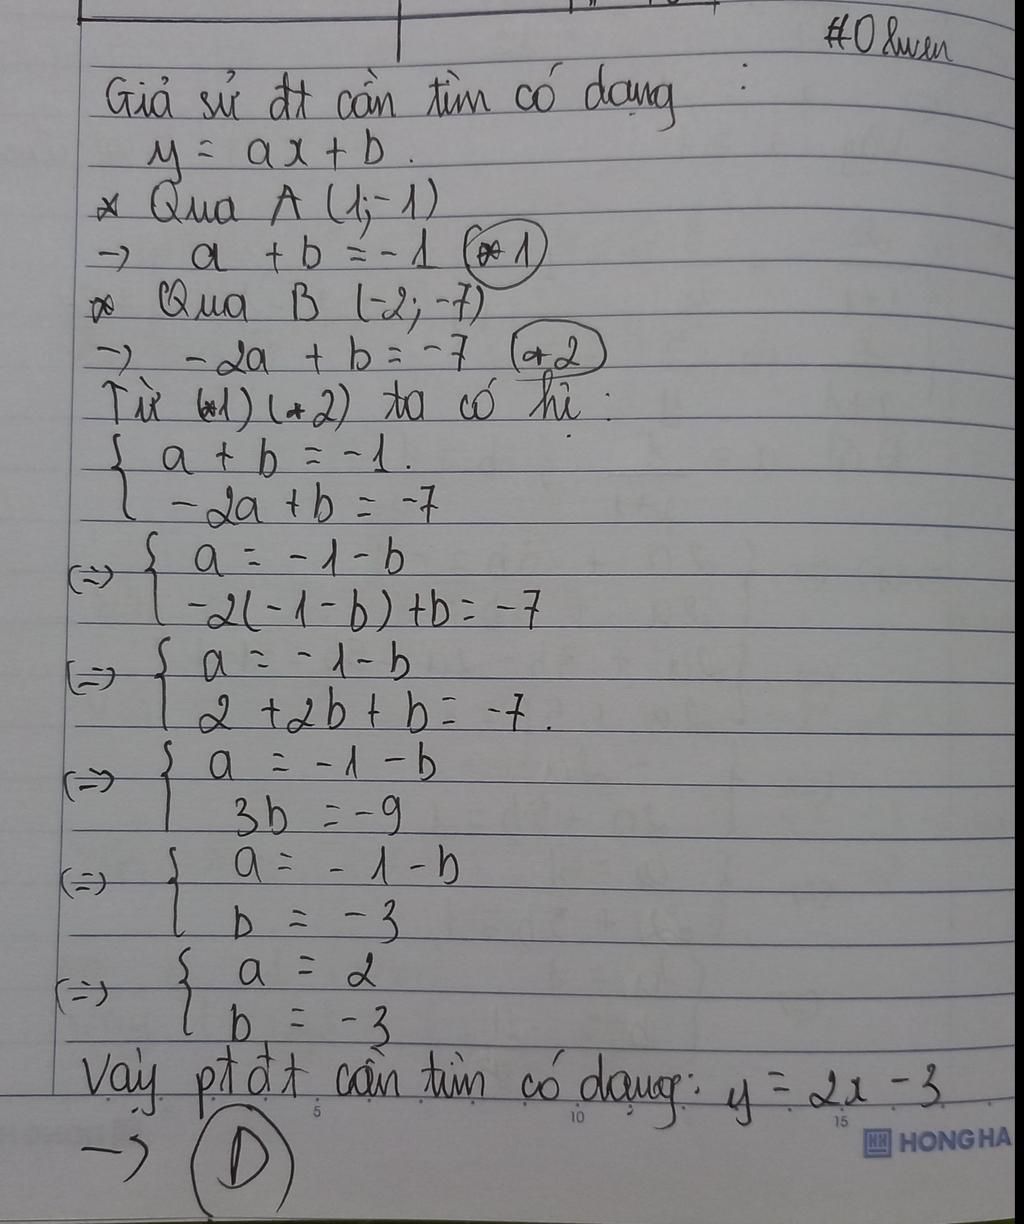 #O
Giả sử đt cần tìm có dạng :
y = ax + b .
* Qua A (1;-1)
-> a + b = -1 (*1)
* Qua B (-2; -7)
-> -2a + b = -7 (*2)
Từ (*1) (*2) ta có hị :
{ a + b = -1.
-2a + b = -7
(=) { a = -1 - b
-2(-1-b) +b = -7
(=) { a = -1 - b
2 +2b + b = -7.
(=) { a = -1 - b
3b = -9
(=) { a = -1 - b
b = -3
(=) { a = 2
b = -3
Vậy ptđt cần tìm có dạng: y = 2x - 3
5 10 15
-> D
HONG HA